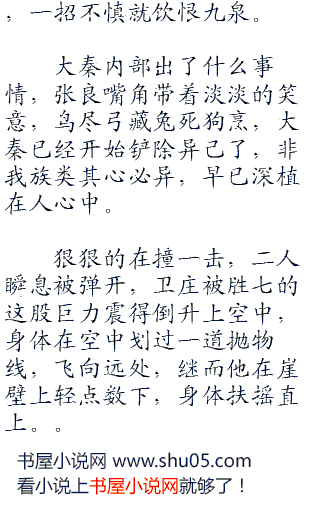 ，一招不慎就饮恨九泉。
大秦内部出了什么事
情，张良嘴角带着淡淡的笑
意，鸟尽弓藏兔死狗烹，大
秦已经开始铲除异己了，非
我族类其心必异，早已深植
在人心中。
狠狠的在撞一击，二人
瞬息被弹开，卫庄被胜七的
这股巨力震得倒升上空中，
身体在空中划过一道抛物
线，飞向远处，继而他在崖
壁上轻点数下，身体扶摇直
上。。
书屋小说网 www.shu05.com
看小说上书屋小说网就够了！